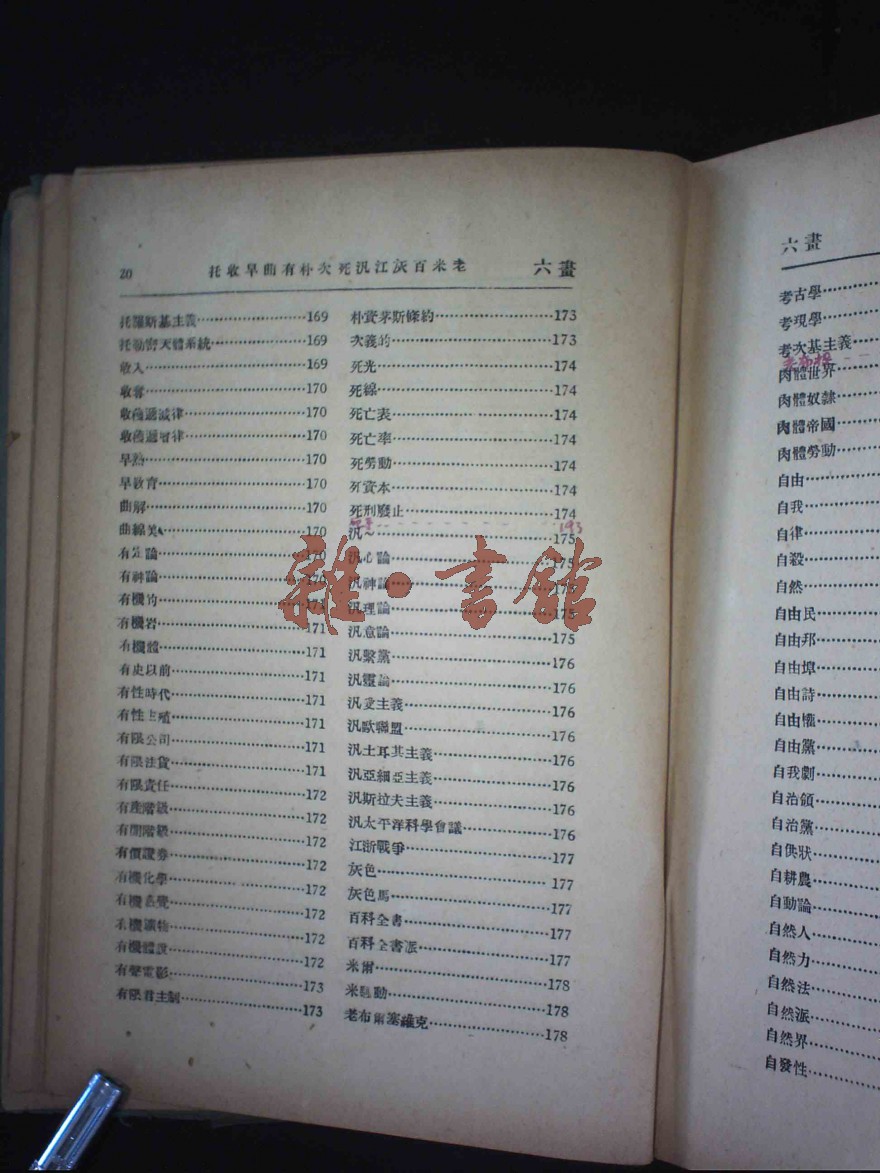 20 托收早曲有朴次死汎江灰百米老 六畫
托羅斯基主義 169
托勒密天體系統 169
收入 169
收奪 170
收穫遞減律 170
收穫遞增律 170
早熟 170
早教育 170
曲解 170
曲線美 170
有定論 170
有神論 170
有機的 171
有機岩 171
有機體 171
有史以前 171
有性時代 171
有性生殖 171
有限公司 171
有限法貨 171
有限責任 172
有產階級 172
有閒階級 172
有價證券 172
有機化學 172
有機感覺 172
有機礦物 172
有機體說 172
有聲電影 173
有限君主制 173
朴資茅斯條約 173
次義的 173
死光 174
死線 174
死亡表 174
死亡率 174
死勞動 174
死資本 174
死刑廢止 174
193
汎~ 175
汎心論 175
汎神論 175
汎理論 175
汎意論 175
汎繫黨 176
汎靈論 176
汎愛主義 176
汎歐聯盟 176
汎土耳其主義 176
汎亞細亞主義 176
汎斯拉夫主義 176
汎太平洋科學會議 176
江浙戰爭 177
灰色 177
灰色馬 177
百科全書 177
百科全書派 177
米爾 178
米騷動 178
老布爾塞維克 178
六畫
考古學
考現學
考次基主義
肉體世界
肉體奴隸
肉體帝國
肉體勞動
自由
自我
自律
自殺
自然
自由民
自由邦
自由埠
自由詩
自由權
自由黨
自我劇
自治領
自治黨
自供狀
自耕農
自動論
自然人
自然力
自然法
自然派
自然界
自發性
雜·書館